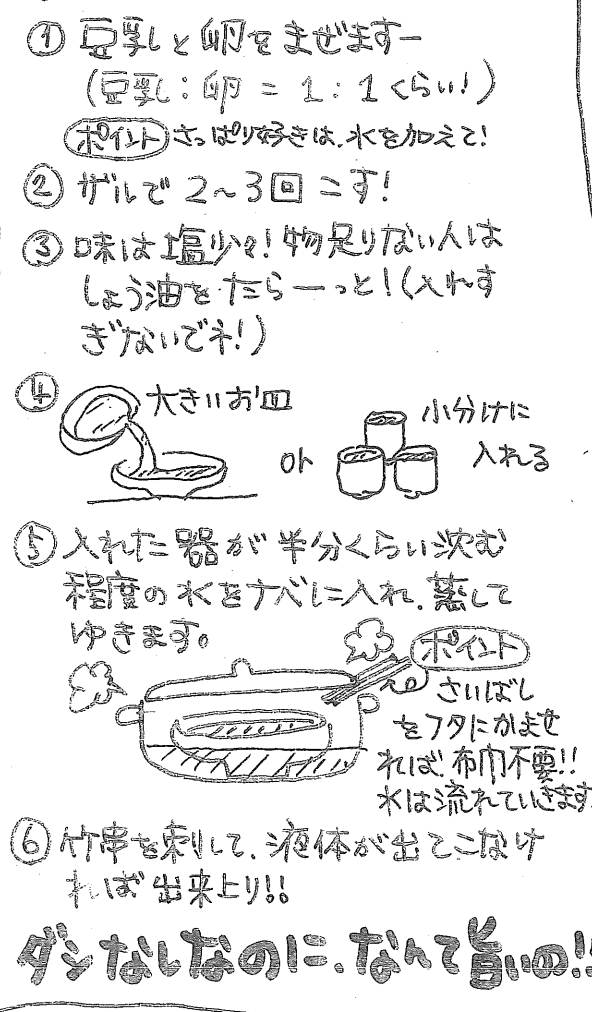 ① 豆乳と卵をまぜますー
(豆乳:卵 = 1:1くらい!)
ポイント さっぱり好きは、水を加えて!
② ザルで2~3回こす!
③ 味は塩少々!物足りない人は
しょう油をたらーっと!(入れす
ぎないでネ!)
④ 大きいお皿
or
小分けに
入れる
⑤ 入れた器が半分くらい沈む
程度の水をナベに入れ、蒸して
ゆきます。
ポイント
さいばし
をフタにかませ
れば、布巾不要!!
水は流れていきます
⑥ 竹串を刺して、液体が出てこなけ
れば出来上り!!
ダシなしなのに、なんて旨いの!!